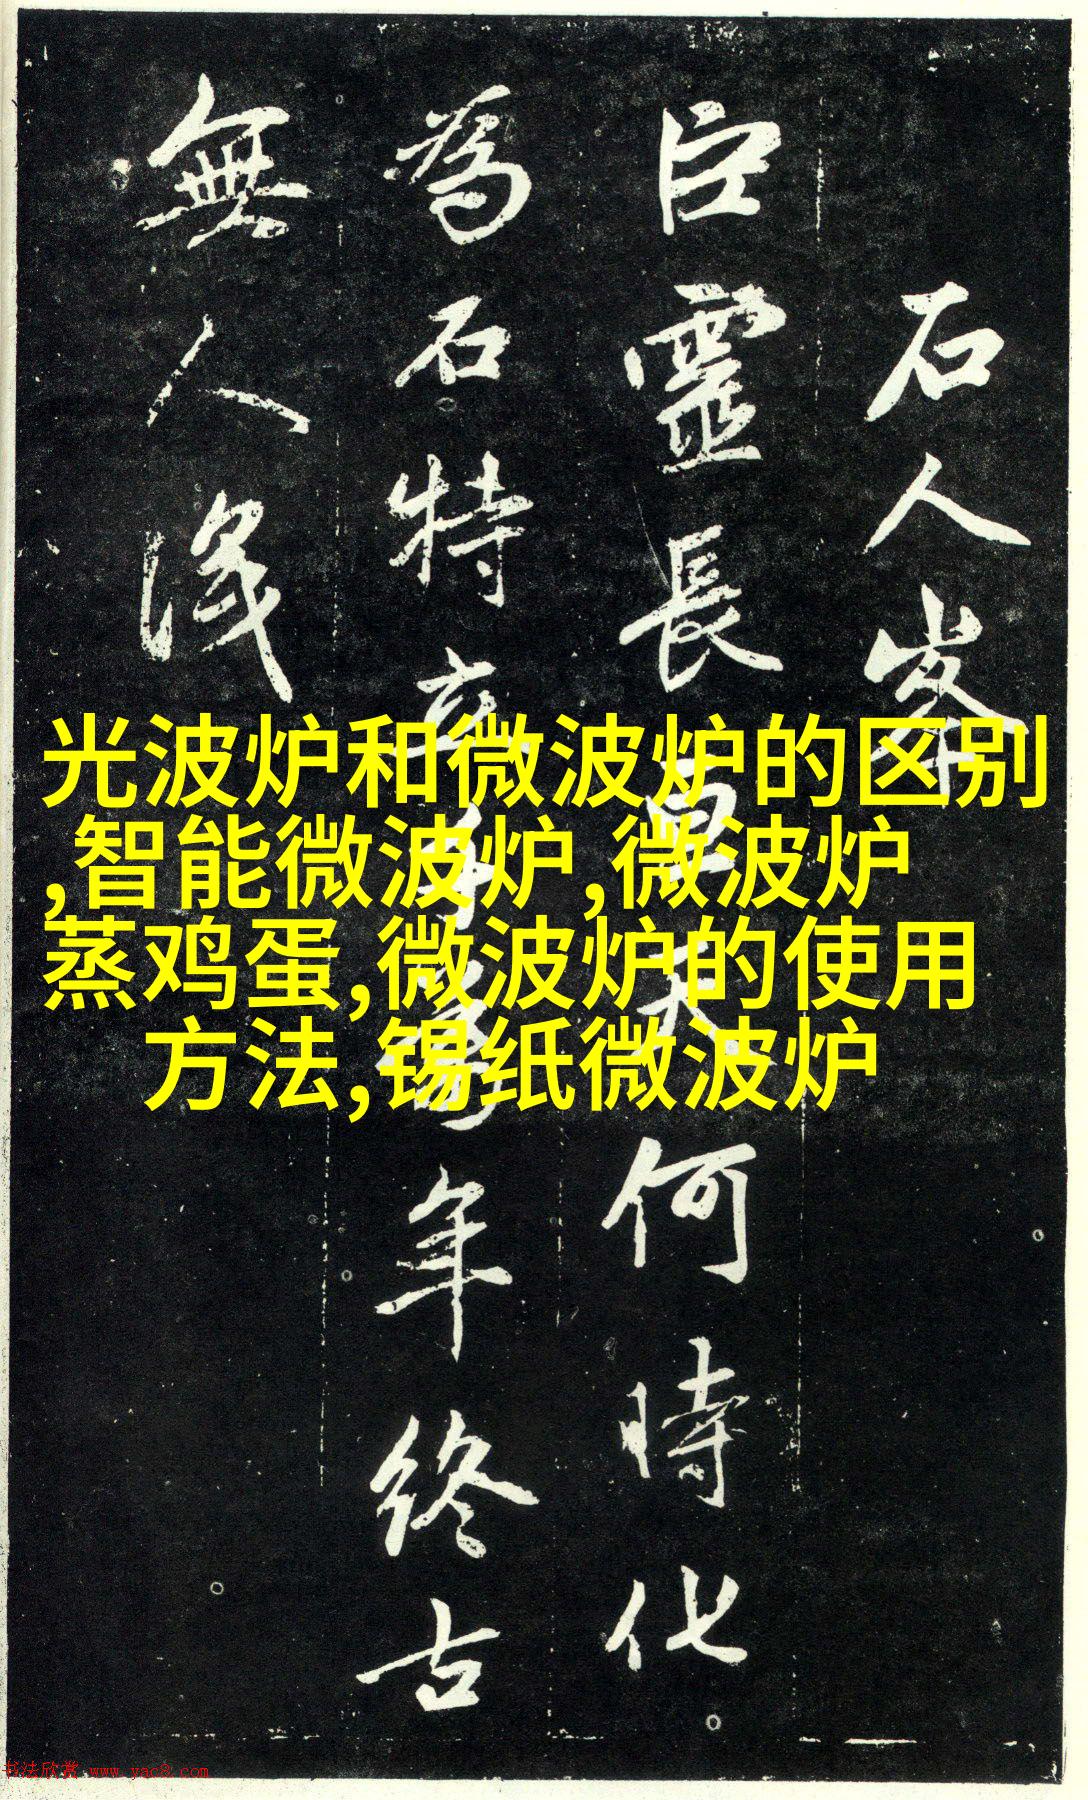 石人峯
巨靈長天何時化
為石特立年終古
無人識
光波炉和微波炉的区别
,智能微波炉,微波炉
蒸鸡蛋,微波炉的使用
方法,锡纸微波炉
书法欣赏 www.yac8.com